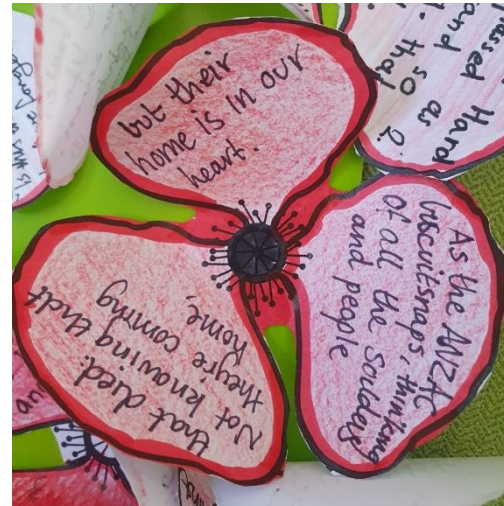 As the ANZAC
biscuitsnaps, thinking
of all the Souldiers
and people
that died.
Not knowing that
they're coming
home,
but their
home is in our
heart.
Hard
and so
that